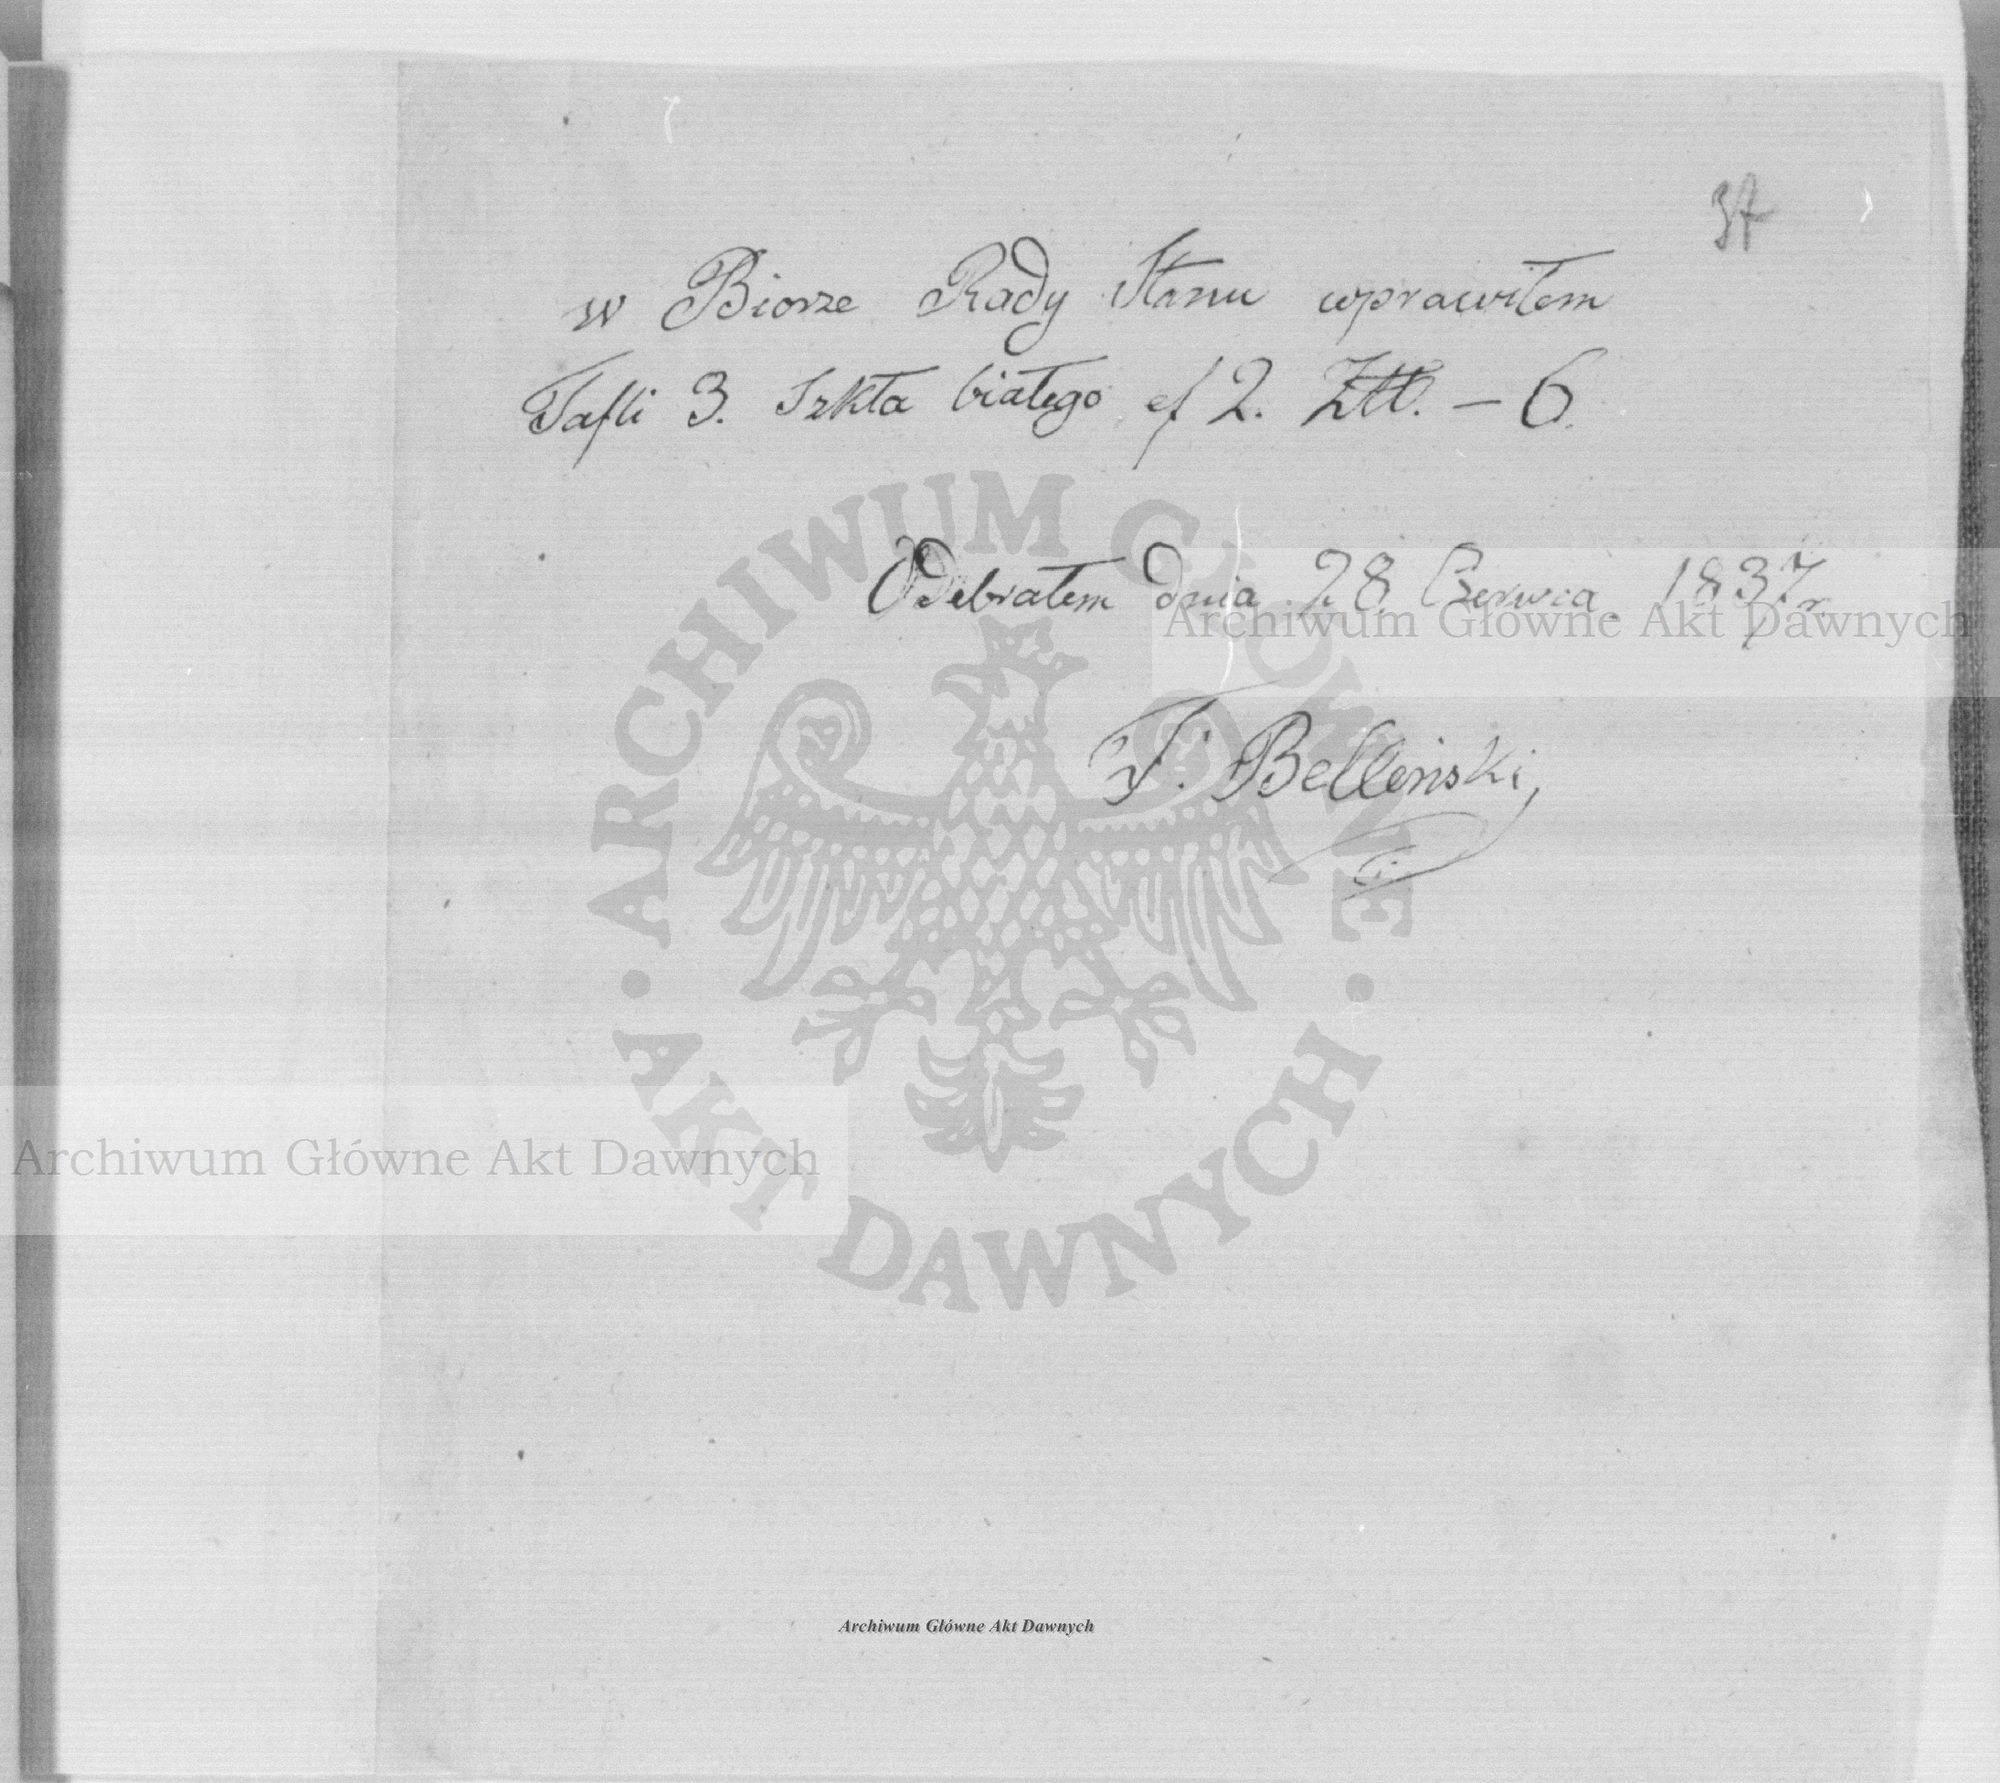 37
w Biorze Rady Stanu wprawiłem
Tafli 3. Szkła białego ef 2. Złł. — 6.
Odebrałem dnia 28 Czerwca 1837 r
F. Belliński,
ARCHIWUM GŁÓWNE AKT DAWNYCH
Archiwum Główne Akt Dawnych
Archiwum Główne Akt Dawnych
Archiwum Główne Akt Dawnych